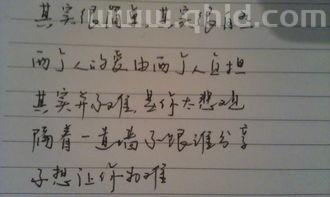 其实很简单 其实很自然
两个人的爱由两个人负担
其实并不难 是你太悲观
隔着一道墙不跟谁分享
不想让你为难